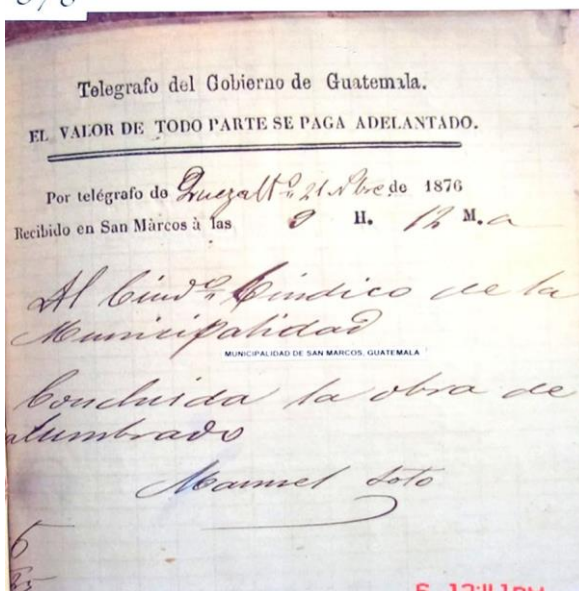 Telegrafo del Gobierno de Guatemala.
EL VALOR DE TODO PARTE SE PAGA ADELANTADO.
Por telégrafo de Quezalt.º 21 Nbre de 1876
Recibido en San Màrcos à las 9 H. 12 M. a
Al Ciud.º Síndico de la
Municipalidad
MUNICIPALIDAD DE SAN MARCOS, GUATEMALA
Concluida la obra de
alumbrado
Manuel Soto